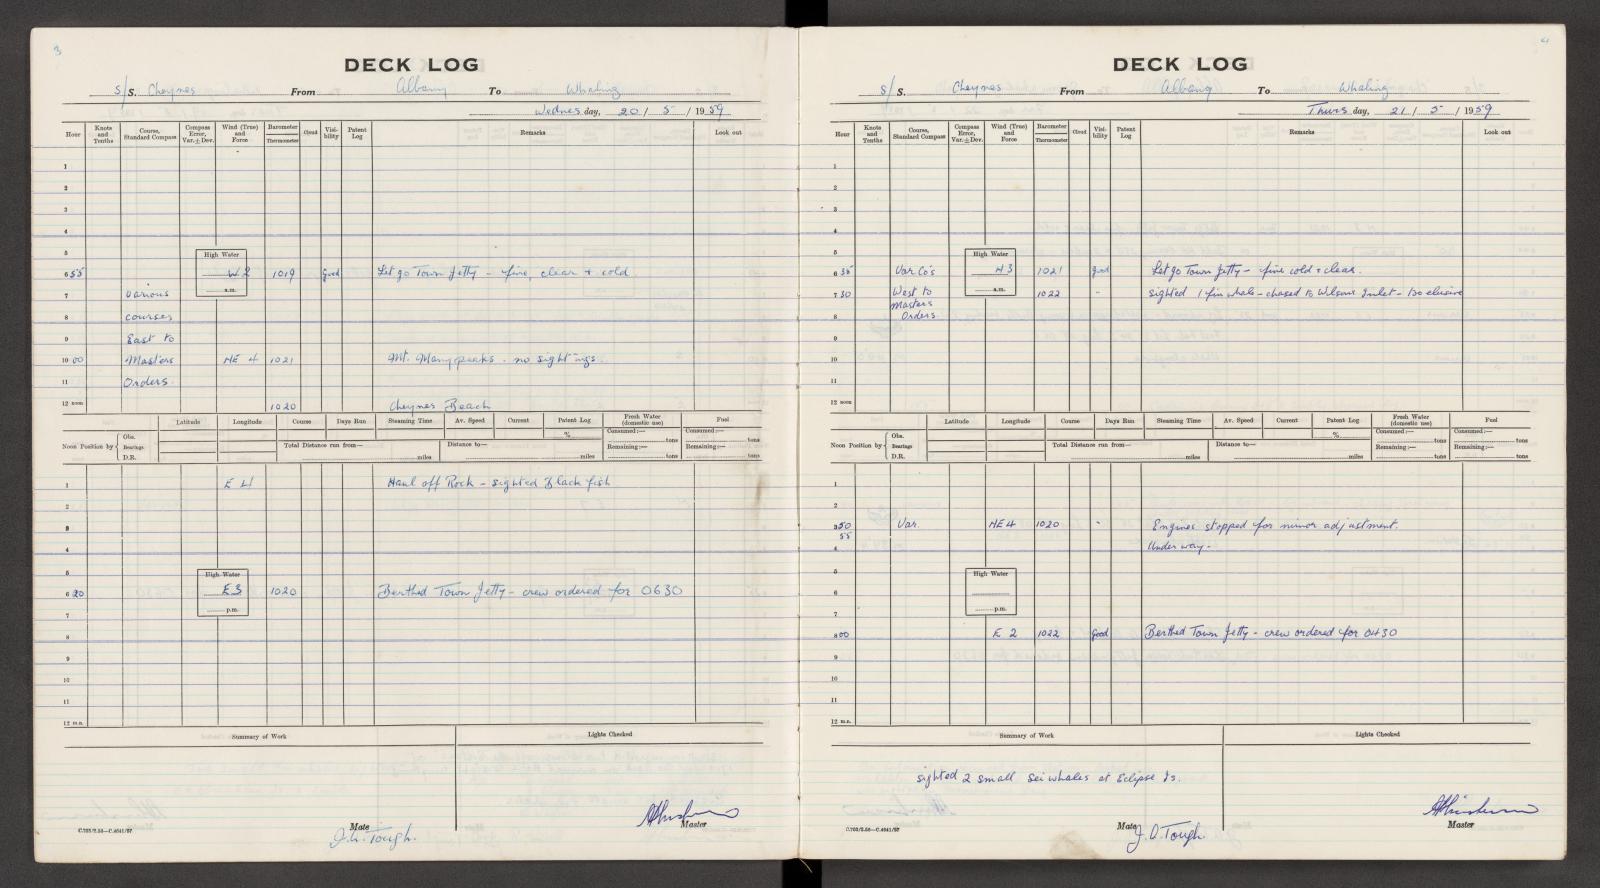 3
DECK LOG
S/S. Cheynes From Albany To Whaling
Wednesday, 20 / 5 / 1959
Hour Knots and Tenths Course, Standard Compass Compass Error, Var. ± Dev. Wind (True) and Force Barometer Thermometer Cloud Visibility Patent Log Remarks Look out
1
2
3
4
5 High Water
6 55 W 2 1019 Good Let go Town Jetty - fine, clear + cold
a.m.
7 Various
8 courses
9 East to
10 00 Masters NE 4 1021 Mt. Manypeaks. no sightings.
11 Orders.
12 noon 1020 Cheynes Beach
Latitude Longitude Course Days Run Steaming Time Av. Speed Current Patent Log Fresh Water (domestic use) Fuel
Noon Position by Obs. Bearings D.R. % Consumed:— tons Consumed:— tons
Total Distance run from— miles Distance to— miles Remaining:— tons Remaining:— tons
1 E 4 Haul off Rock - sighted Black fish
2
3
4
5 High Water
6 20 E 3 1020 Berthed Town Jetty - crew ordered for 0630
7 p.m.
8
9
10
11
12 m.n.
Summary of Work Lights Checked
C.702/2.58—C.4641/57
Mate J. D. Tough.
Master
4
DECK LOG
S/S. Cheynes From Albany To Whaling
Thursday, 21 / 5 / 1959
Hour Knots and Tenths Course, Standard Compass Compass Error, Var. ± Dev. Wind (True) and Force Barometer Thermometer Cloud Visibility Patent Log Remarks Look out
1
2
3
4
5 High Water
6 35 Var Co's N 3 1021 good Let go Town Jetty - fine cold + clear.
a.m.
7 30 West to 1022 - sighted 1 fin whale - chased to Wilsons Inlet - too elusive
Masters
8 Orders
9
10
11
12 noon
Latitude Longitude Course Days Run Steaming Time Av. Speed Current Patent Log Fresh Water (domestic use) Fuel
Noon Position by Obs. Bearings D.R. % Consumed:— tons Consumed:— tons
Total Distance run from— miles Distance to— miles Remaining:— tons Remaining:— tons
1
2
3 50 Var. NE 4 1020 - Engines stopped for minor adjustment.
55
4 Under way -
5 High Water
6
7 p.m.
8 00 E 2 1022 Good Berthed Town Jetty - crew ordered for 0430
9
10
11
12 m.n.
Summary of Work Lights Checked
sighted 2 small Sei whales at Eclipse Is.
C.702/2.58—C.4641/57
Mate J. D. Tough.
Master